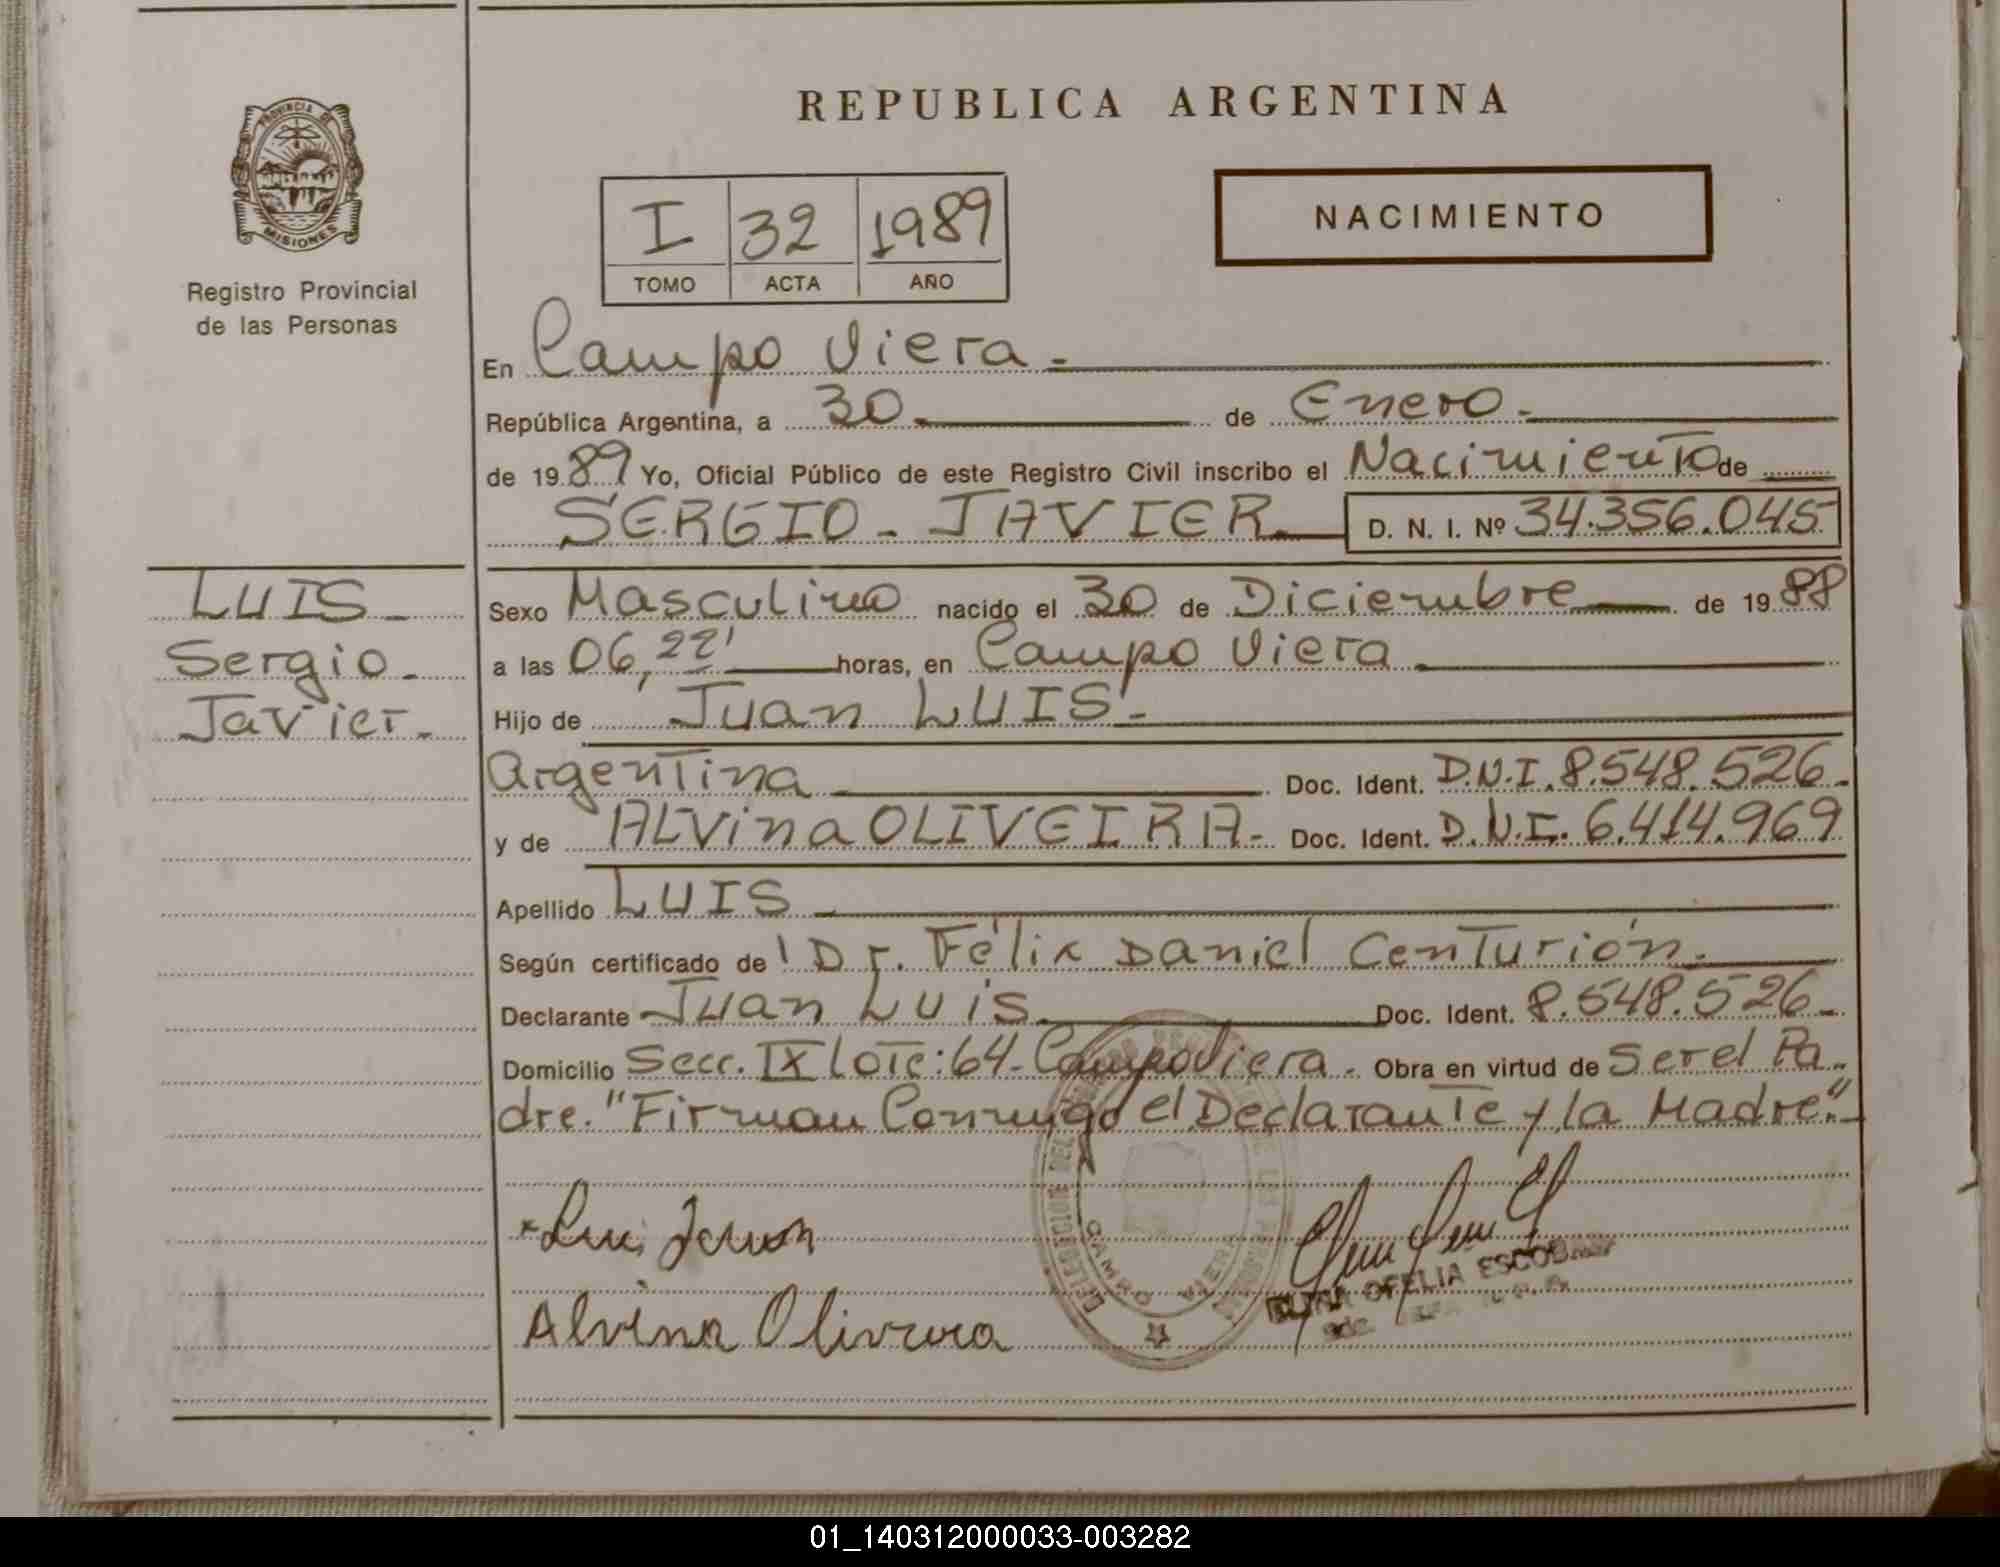 PROVINCIA DE
MISIONES
Registro Provincial
de las Personas
REPUBLICA ARGENTINA
I 32 1989
TOMO ACTA AÑO
NACIMIENTO
En Campo Viera.-
República Argentina, a 30 de Enero.-
de 1989 Yo, Oficial Público de este Registro Civil inscribo el Nacimiento de
SERGIO - JAVIER D. N. I. Nº 34.356.045
LUIS -
Sergio -
Javier.-
Sexo Masculino nacido el 30 de Diciembre de 1988
a las 06,22' horas, en Campo Viera
Hijo de Juan LUIS -
Argentina Doc. Ident. D.N.I. 8.548.526.-
y de ALVina OLIVEIRA- Doc. Ident. D.N.I. 6.414.969
Apellido LUIS
Según certificado de Dr. Félix Daniel Centurión.
Declarante Juan Luis Doc. Ident. 8.548.526.-
Domicilio Secc. IX Lote: 64- Campo Viera. Obra en virtud de Ser el Pa-
dre. "Firman Conmigo el Declarante y la Madre".-
Alvina
DELEGACION DEL
CAMPO VIERA
OFELIA
01_140312000033-003282